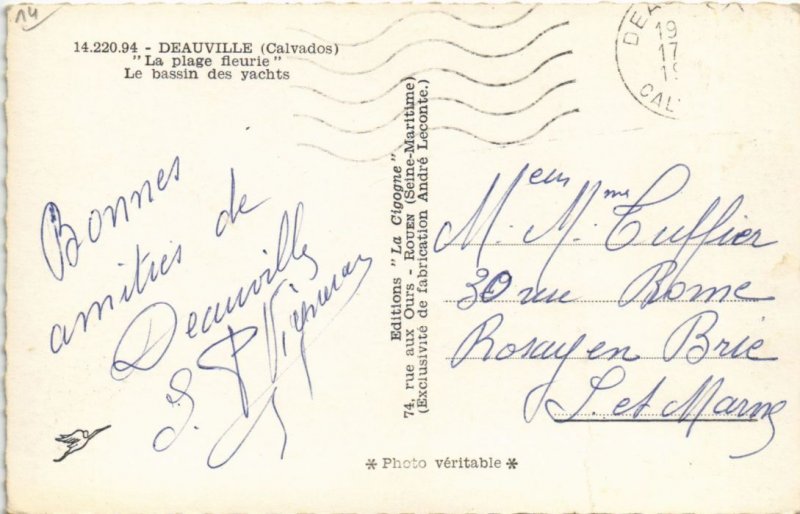 14
14.220.94 - DEAUVILLE (Calvados)
"La plage fleurie"
Le bassin des yachts
Bonnes
amitiés de
Deauville
J. P Vigneron
Editions "La Cigogne"
74, rue aux Ours - ROUEN (Seine-Maritime)
(Exclusivité de fabrication André Leconte.)
19
17
19
CAL
Meur Mme Tuffier
30 rue Rome
Rosay en Brie
S. et Marne
* Photo véritable *